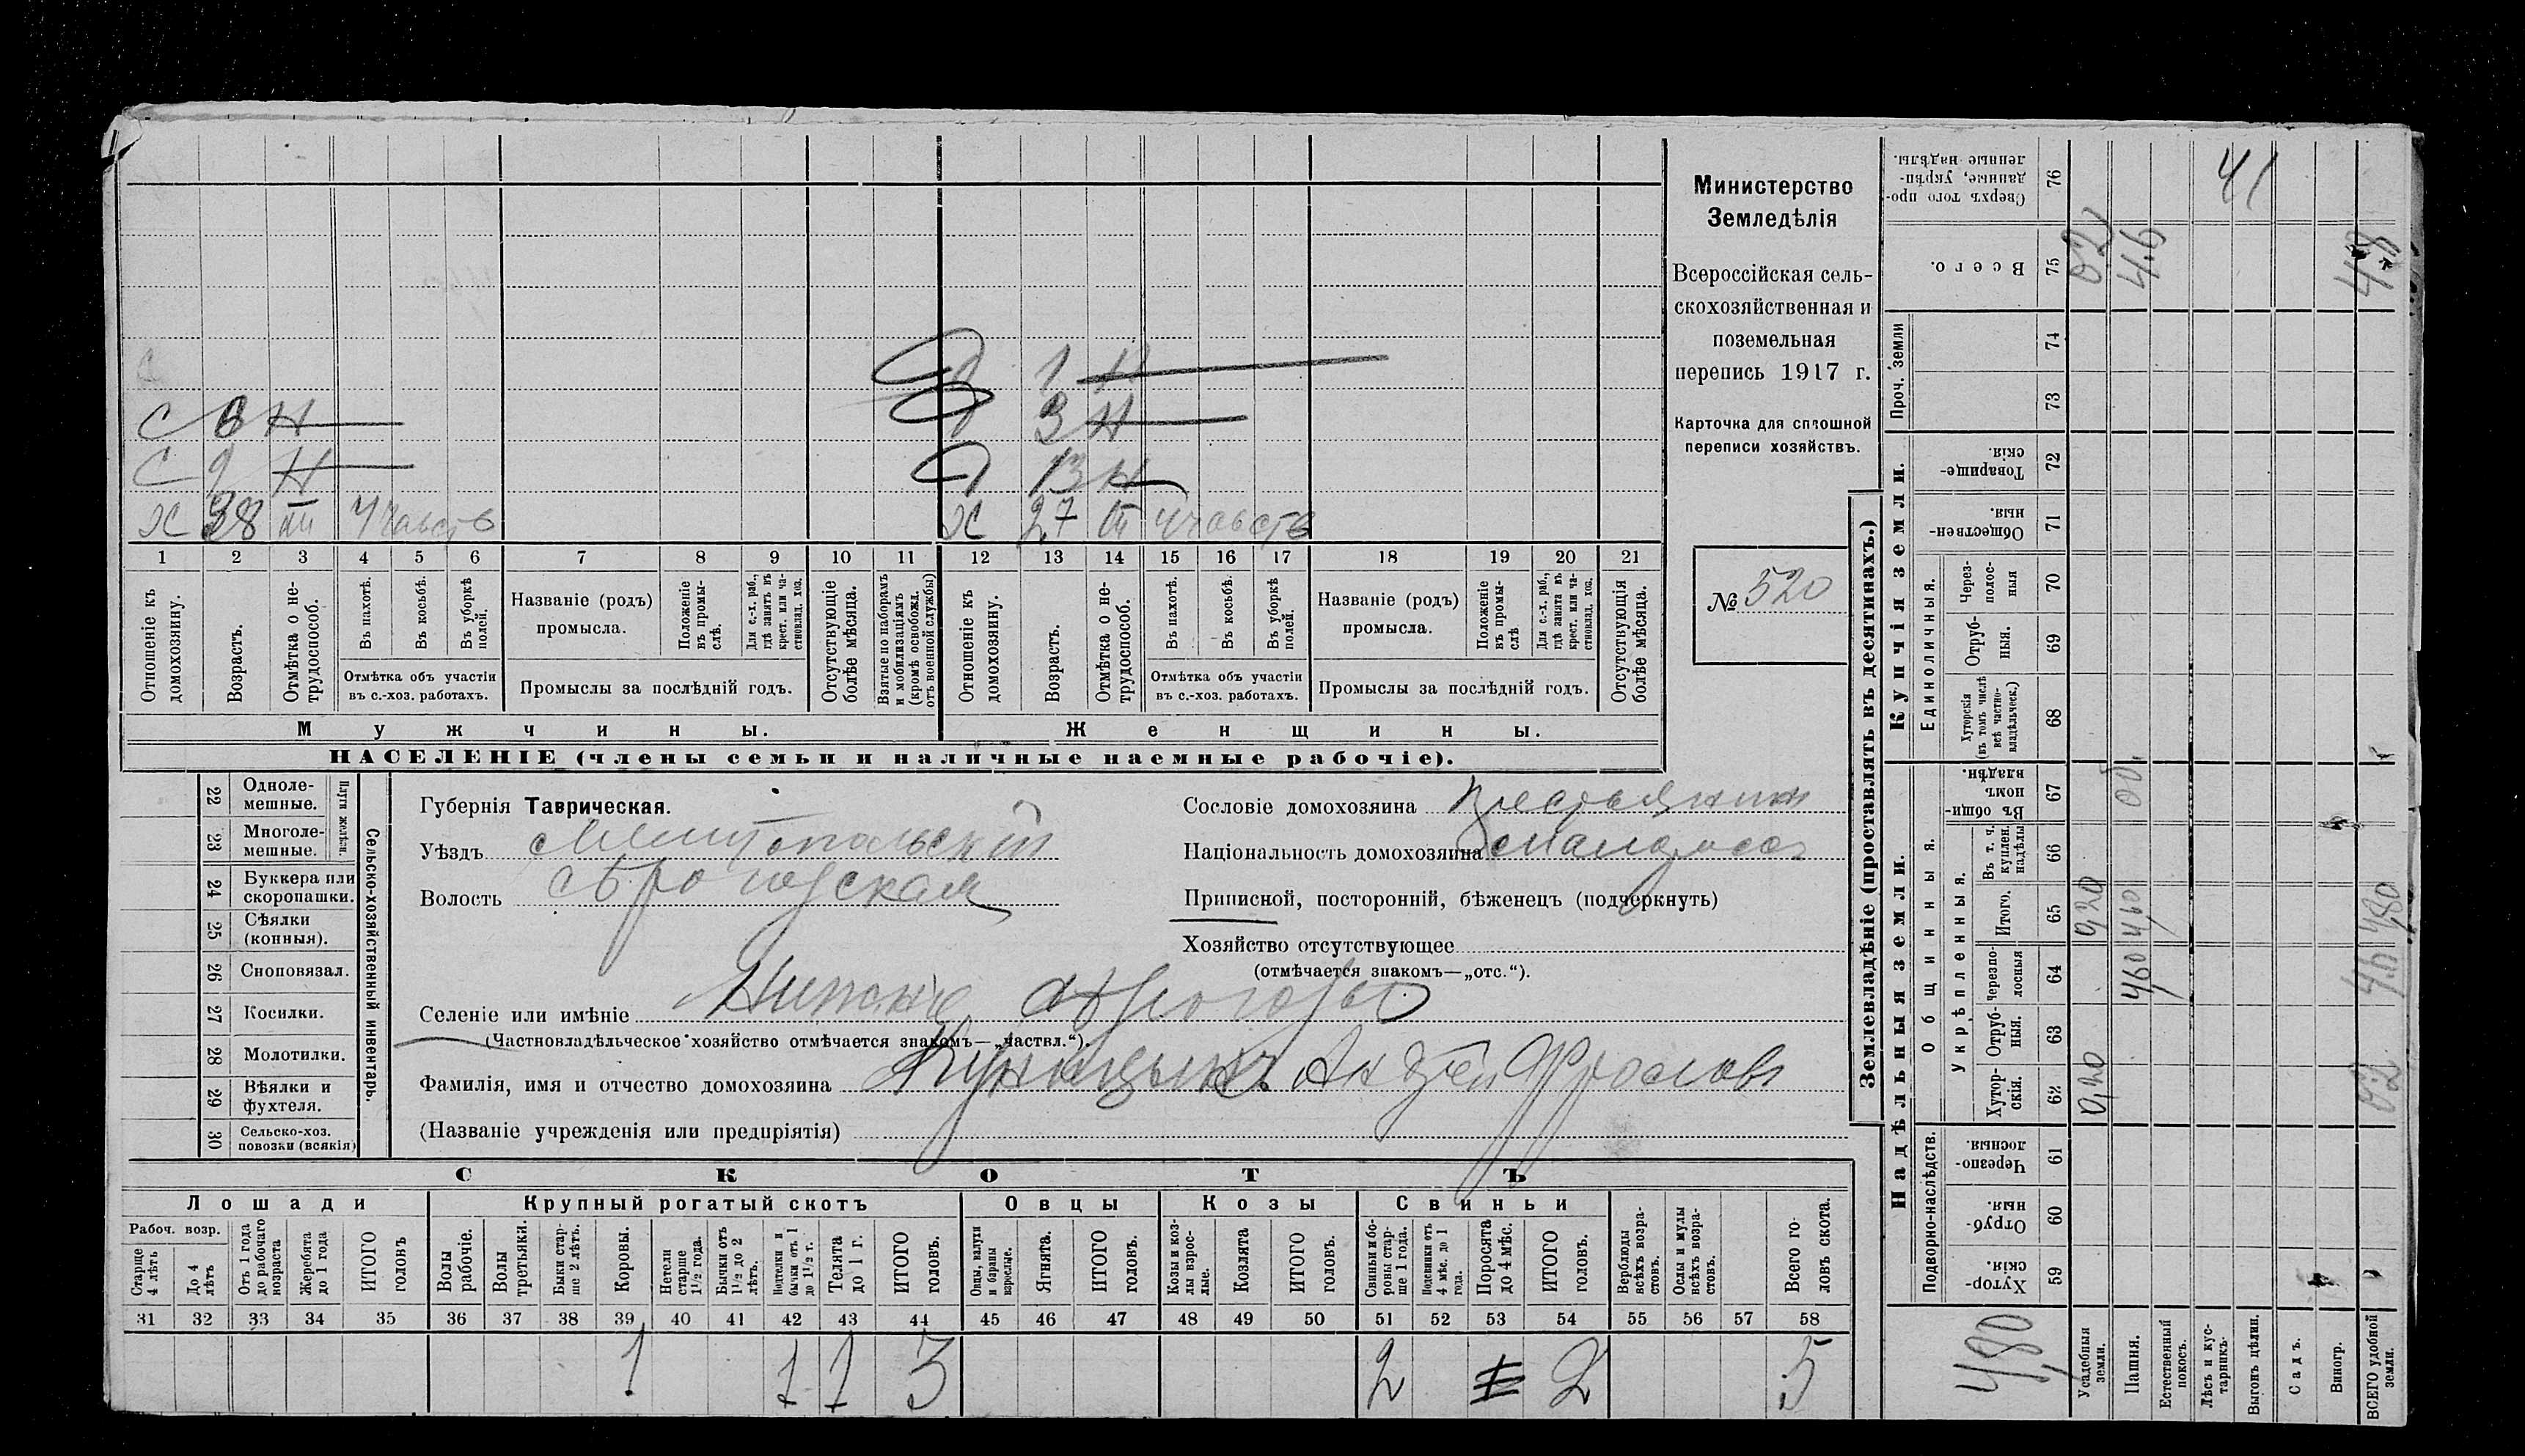 д 1 н
с 6 н д 3 н
с 9 н д 13 н
х 38 ш участв х 27 ш участв
1 2 3 4 5 6 7 8 9 10 11 12 13 14 15 16 17 18 19 20 21
Отношеніе къ домохозяину.
Возрастъ.
Отмѣтка о не-трудоспособ.
Въ пахотѣ.
Въ косьбѣ.
Въ уборкѣ полей.
Отмѣтка объ участіи
въ с.-хоз. работахъ.
Названіе (родъ)
промысла.
Положеніе въ промы-слѣ.
Для с.-х. раб., гдѣ занятъ въ крест. или ча-стновлад. хоз.
Промыслы за послѣдній годъ.
Отсутствующіе болѣе мѣсяца.
Взятые по наборамъ и мобилизаціямъ (кромѣ освобожд. отъ военной службы)
Отношеніе къ домохозяину.
Возрастъ.
Отмѣтка о не-трудоспособ.
Въ пахотѣ.
Въ косьбѣ.
Въ уборкѣ полей.
Отмѣтка объ участіи
въ с.-хоз. работахъ.
Названіе (родъ)
промысла.
Положеніе въ промы-слѣ
Для с.-х. раб., гдѣ занята въ крест. или ча-стновлад. хоз.
Промыслы за послѣдній годъ.
Отсутствующія болѣе мѣсяца.
Мужчины. Женщины.
НАСЕЛЕНІЕ (члены семьи и наличные наемные рабочіе).
Министерство
Земледѣлія
Всероссійская сель-
скохозяйственная и
поземельная
перепись 1917 г.
Карточка для сплошной
переписи хозяйствъ.
№ 520
22 Одноле-мешные.
23 Многоле-мешные.
Плуги желѣзн.
24 Буккера или скоропашки.
25 Сѣялки (конныя).
26 Сноповязал.
27 Косилки.
28 Молотилки.
29 Вѣялки и фухтеля.
30 Сельско-хоз. повозки (всякія)
Сельско-хозяйственный инвентарь.
Губернія Таврическая.
Уѣздъ Мелитопольскій
Волость Сѣрогозская
Сословіе домохозяина крестьянин
Національность домохозяина малоросс
Приписной, посторонній, бѣженецъ (подчеркнуть)
Хозяйство отсутствующее
(отмѣчается знакомъ—„отс.“).
Селеніе или имѣніе Нижніе Сѣрогозы
(Частновладѣльческое хозяйство отмѣчается знакомъ—„частвл.“).
Фамилія, имя и отчество домохозяина Куницынъ Андрей Фролов
(Названіе учрежденія или предпріятія)
СКОТЪ
Лошади Крупный рогатый скотъ Овцы Козы Свиньи
Рабоч. возр.
Старше 4 лѣтъ
До 4 лѣтъ
Отъ 1 года до рабочаго возраста
Жеребята до 1 года
ИТОГО головъ
Волы рабочіе.
Волы третьяки.
Быки стар-ше 2 лѣтъ.
Коровы.
Нетели старше 1½ года.
Бычки отъ 1½ до 2 лѣтъ.
Подтелки и бычки отъ 1 до 1½ г.
Телята до 1 г.
ИТОГО головъ.
Овцы, валухи и бараны взрослые.
Ягнята.
ИТОГО головъ.
Козы и коз-лы взрос-лые.
Козлята
ИТОГО головъ.
Свиньи и бо-ровы стар-ше 1 года.
Подсвинки отъ 4 мѣс. до 1 года.
Поросята до 4 мѣс.
ИТОГО головъ.
Верблюды всѣхъ возра-стовъ.
Ослы и мулы всѣхъ возра-стовъ.
Всего го-ловъ скота.
31 32 33 34 35 36 37 38 39 40 41 42 43 44 45 46 47 48 49 50 51 52 53 54 55 56 57 58
1 1 1 3 2 2 5
Землевладѣніе (проставлять въ десятинахъ.)
Надѣльныя земли. Купчія земли. Проч. земли
Подворно-наслѣдств. Общинныя. Единоличныя.
Укрѣпленныя.
Хутор-скія. 59
Отруб-ныя. 60
Черезпо-лосныя 61
Хутор-скія. 62
Отруб-ныя. 63
черезпо-лосныя 64
Итого. 65
Въ т. ч. куплен. надѣлы 66
Въ общи-номъ владѣн. 67
Хуторскія (въ томъ числѣ всѣ частно-владѣльческ.) 68
Отруб-ныя. 69
Через-полос-ныя 70
Обществен-ныя. 71
Товарище-скія. 72
73
74
Всего. 75
Сверхъ того про-данные, укрѣп-ленные надѣлы. 76
Усадебныя земли. 0,20 0,20 0.2
Пашня. 4,60 4,60 4.6
Естественный покосъ.
Лѣсъ и кус-тарникъ.
Выгонъ цѣлин.
Садъ.
Виногр.
ВСЕГО удобной земли. 0.2 4.6 4,80 4.8
4,80
41